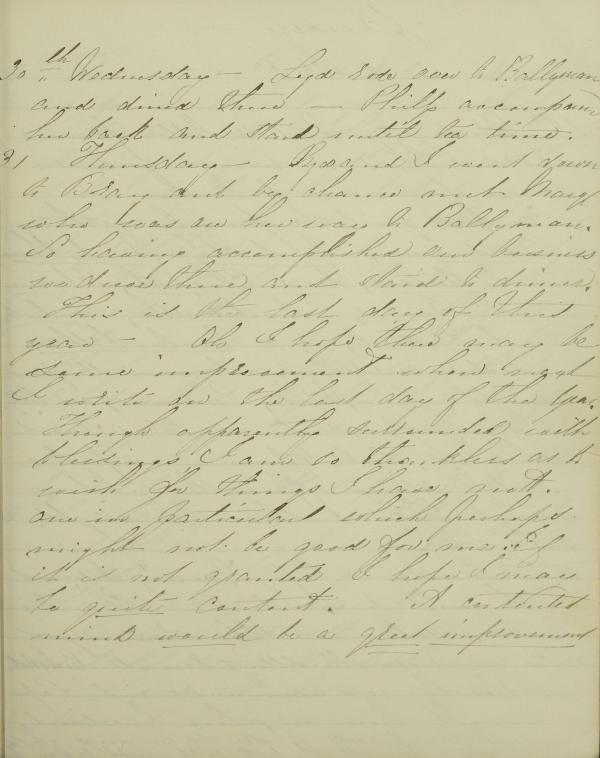 30th Wednesday — Lyd rode over to Ballyman
and dined there — Philp accompan
her back and staid until tea time.
31 Thursday — Lyd and I went down
to Bray and by chance met Margt
who was on her way to Ballyman.
So having accomplished our business
we drove there and staid to dinner.
This is the last day of this
year — Oh I hope there may be
some improvement when next
I write on the last day of the year.
Though apparently surrounded with
blessings I am so thankless as to
wish for things I have not.
one in particular which perhaps
might not be good for me. If
it is not granted I hope I may
be quite content. A contented
mind would be a great improvement